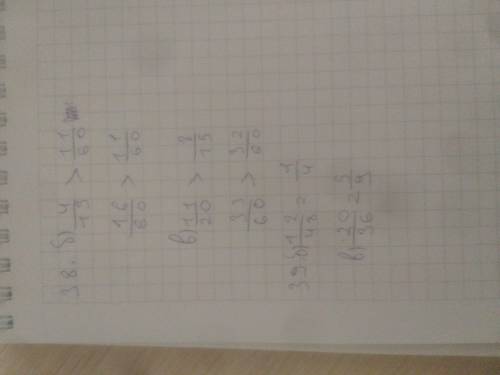 38. б) 4/15 > 11/60
16/60 > 11/60
в) 11/20 > 8/15
33/60 > 32/60
39. б) 12/48 = 1/4
в) 20/36 = 5/9